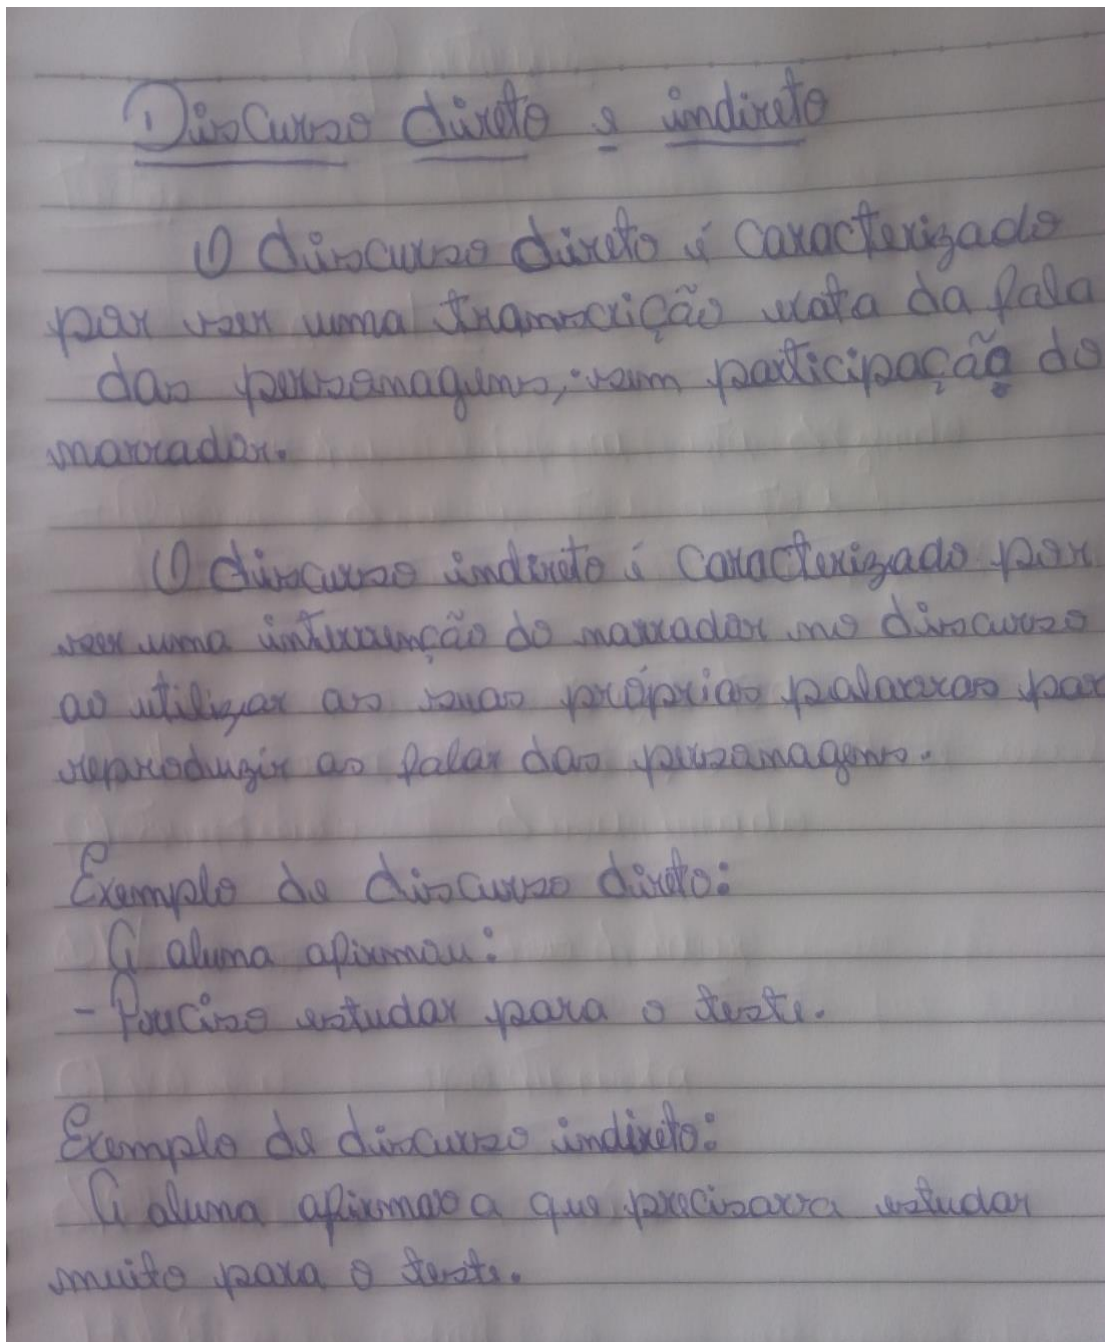 Discurso direto e indireto
O discurso direto é caracterizado
por ser uma transcrição exata da fala
das personagens, sem participação do
narrador.
O discurso indireto é caracterizado por
ser uma intervenção do narrador no discurso
ao utilizar as suas próprias palavras par
reproduzir as falar das personagens.
Exemplo de discurso direto:
A aluna afirmou:
- Preciso estudar para o teste.
Exemplo de discurso indireto:
A aluna afirmava que precisava estudar
muito para o teste.